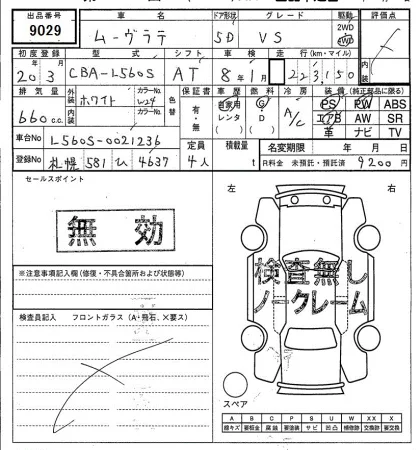 出品番号 車名 ドア形状 グレード 駆動 評価点
9029 ムーヴラテ 5D VS 2WD 4WD
初度登録 型式 シフト 車検 走行(km・マイル) 内装
20 3 CBA-L560S AT 8年1月 223,150
排気量 外装 カラーNo. 色替 保証書 車歴 燃料 冷房 装備(純正部品に限る)
660 c.c. ホワイト W24 有・無 自家用 レンタ ( ) G・D ( ) A/C PS PW ABS
内装 カラーNo. エアB AW SR
革 ナビ TV
車台No L560S-0021236 定員 積載量 名変期限 年 月 日
登録No 札幌 581 4637 4人 R料金 未預託・預託済 9200円
セールスポイント
無効
※注意事項記入欄(修復・不具合箇所および状態等)
検査員記入 フロントガラス(A・飛石、×要ス)
左 右
検査無し
ノークレーム
スペア
A B C P S U W X XX
線キズ 要板金 腐蝕 要塗装 サビ 凹凸 補修跡 交換跡 要交換